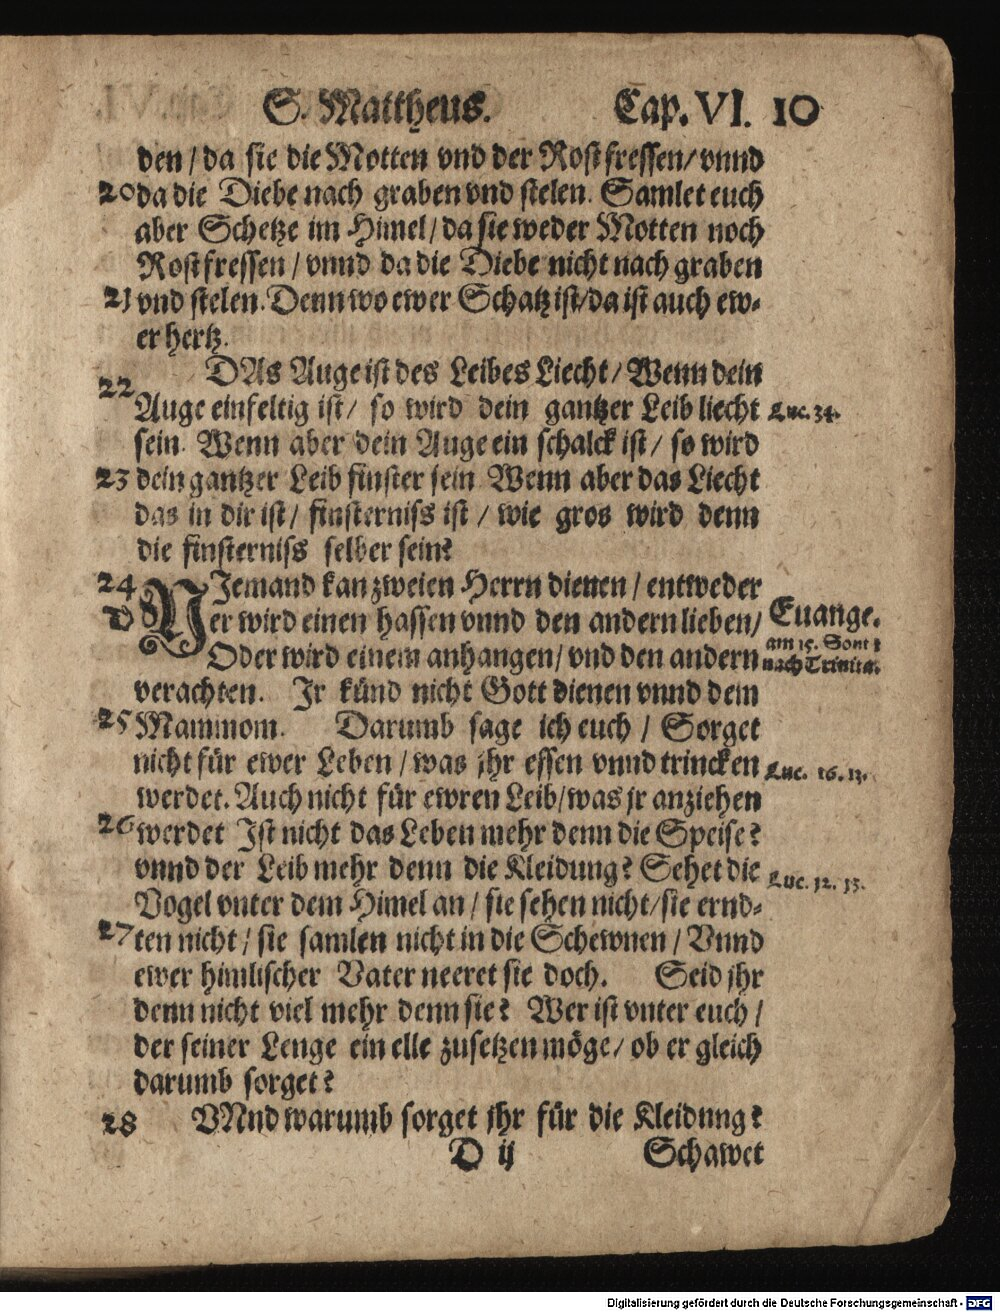 S. Mattheus. Cap. VI. 10
den / da sie die Motten vnd der Rost fressen / vnnd
20 da die Diebe nach graben vnd stelen. Samlet euch
aber Schetze im Himel / da sie weder Motten noch
Rost fressen / vnnd da die Diebe nicht nach graben
21 vnd stelen. Denn wo ewer Schatz ist / da ist auch ew-
er hertz.
22 DAs Auge ist des Leibes Liecht / Wenn dein
Auge einfeltig ist / so wird dein gantzer Leib liecht Luc. 34.
sein. Wenn aber dein Auge ein schalck ist / so wird
23 dein gantzer Leib finster sein Wenn aber das Liecht
das in dir ist / finsterniss ist / wie gros wird denn
die finsterniss selber sein?
24 NJemand kan zweien Herrn dienen / entweder
D er wird einen hassen vnnd den andern lieben / Euange.
am 15. Sont
Oder wird einem anhangen / vnd den andern nach Trinita.
verachten. Jr künd nicht Gott dienen vnnd dem
25 Mammom. Darumb sage ich euch / Sorget
nicht für ewer Leben / was jhr essen vnnd trincken Luc. 16. 13.
werdet. Auch nicht für ewren Leib / was jr anziehen
26 werdet Jst nicht das Leben mehr denn die Speise?
vnnd der Leib mehr denn die Kleidung? Sehet die Luc. 12. 13.
Vogel vnter dem Himel an / sie sehen nicht / sie ernd-
27 ten nicht / sie samlen nicht in die Schewnen / Vnnd
ewer himlischer Vater neeret sie doch. Seid jhr
denn nicht viel mehr denn sie? Wer ist vnter euch /
der seiner Lenge ein elle zusetzen möge / ob er gleich
darumb sorget?
28 VNnd warumb sorget jhr für die Kleidung?
D ij Schawet
Digitalisierung gefördert durch die Deutsche Forschungsgemeinschaft - DFG